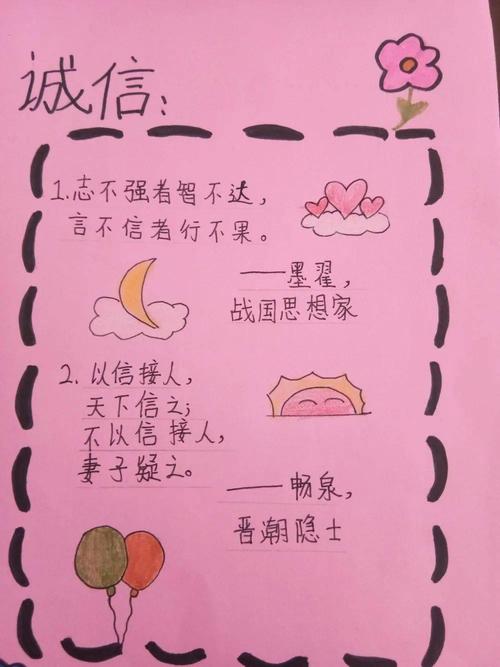 诚信:
1.志不强者智不达，
言不信者行不果。
——墨翟，
战国思想家
2. 以信接人，
天下信之；
不以信接人，
妻子疑之。
——畅泉，
晋潮隐士